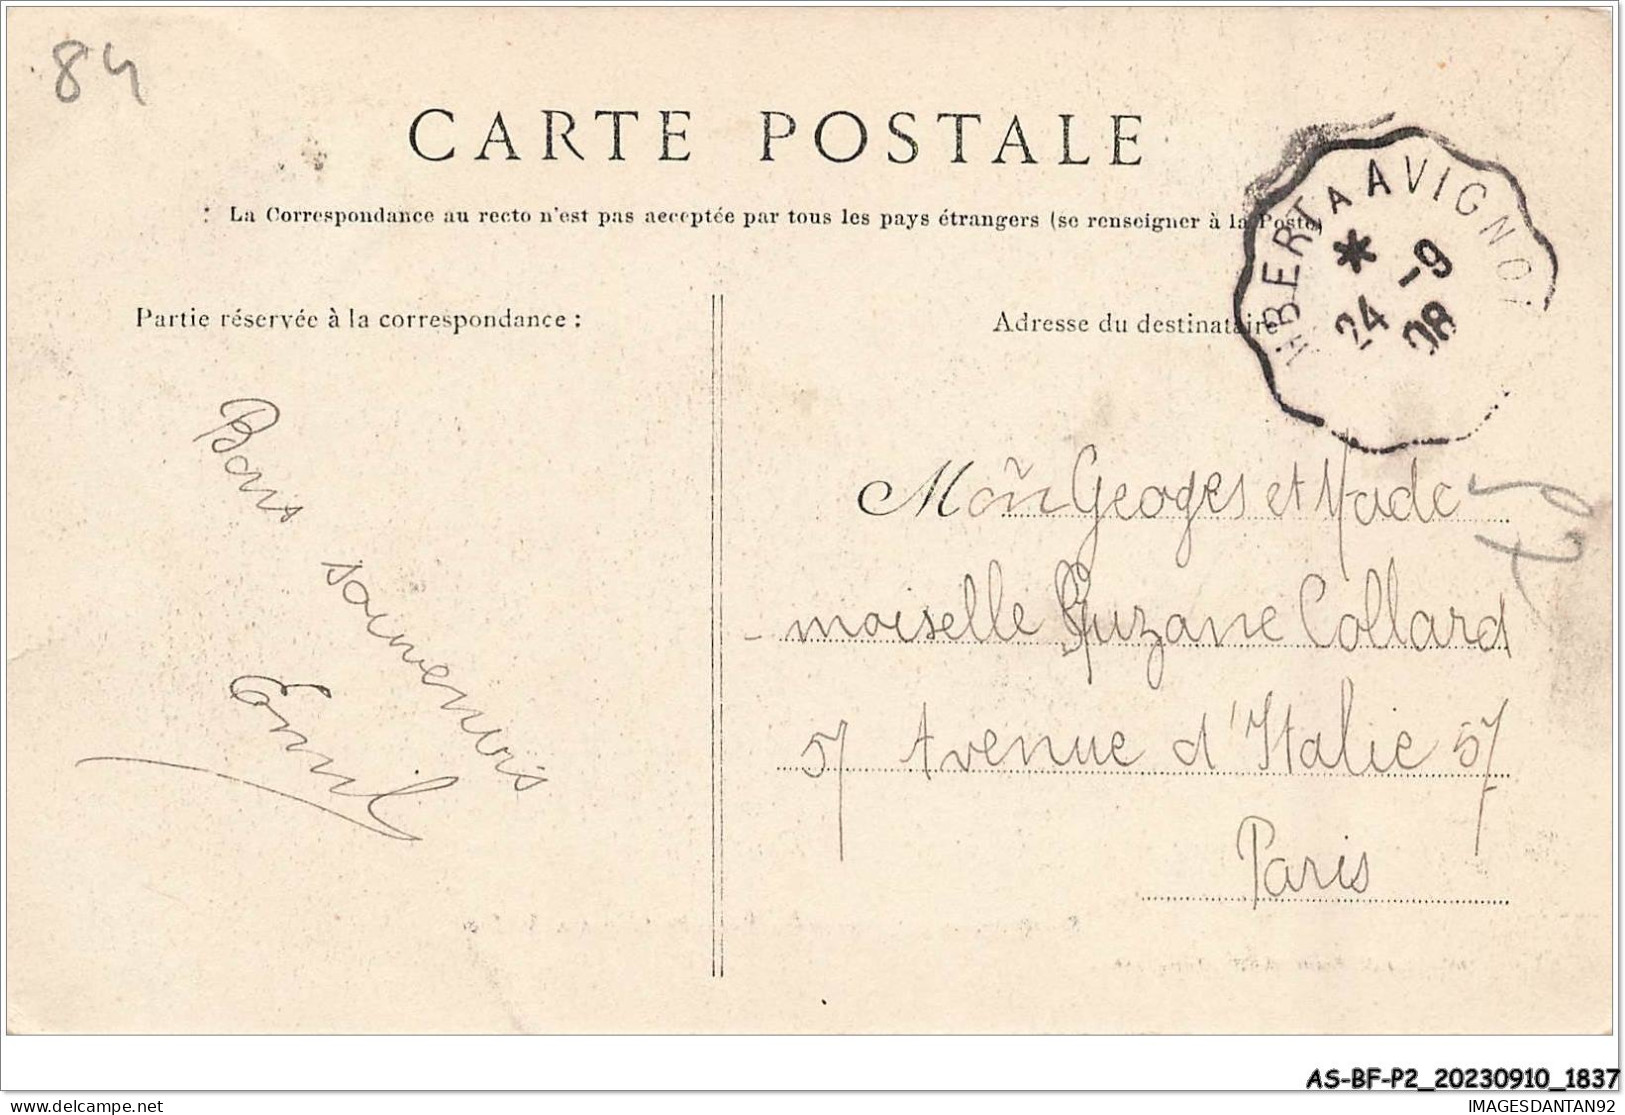 84
CARTE POSTALE
La Correspondance au recto n'est pas acceptée par tous les pays étrangers (se renseigner à la Poste)
BERT A AVIGNO
24 -9
08
Partie réservée à la correspondance :
Adresse du destinataire
Bons
souvenirs
Emil
Georges et Made
-moiselle Suzane Collard
57 Avenue d'Italie 57
Paris
AS-BF-P2_20230910_1837
delcampe.net
IMAGESDANTAN92